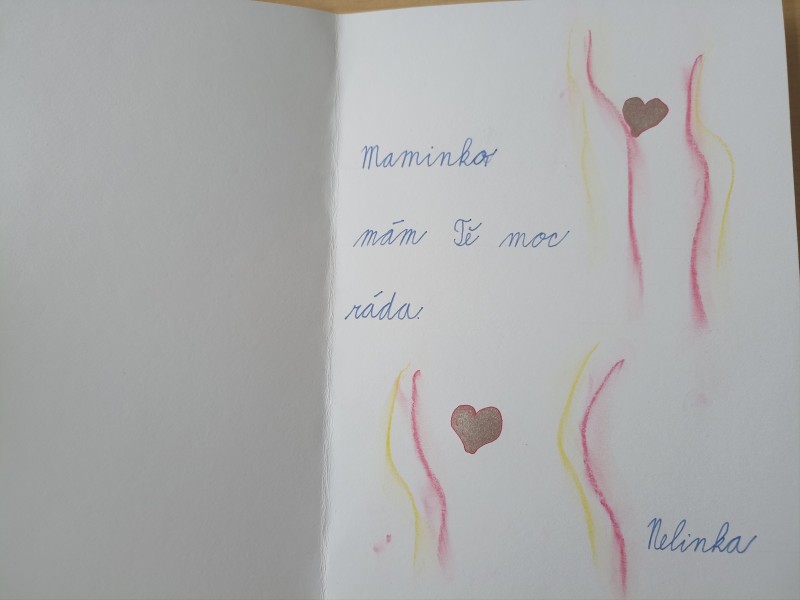 Maminko,
mám Tě moc
ráda.
Nelinka